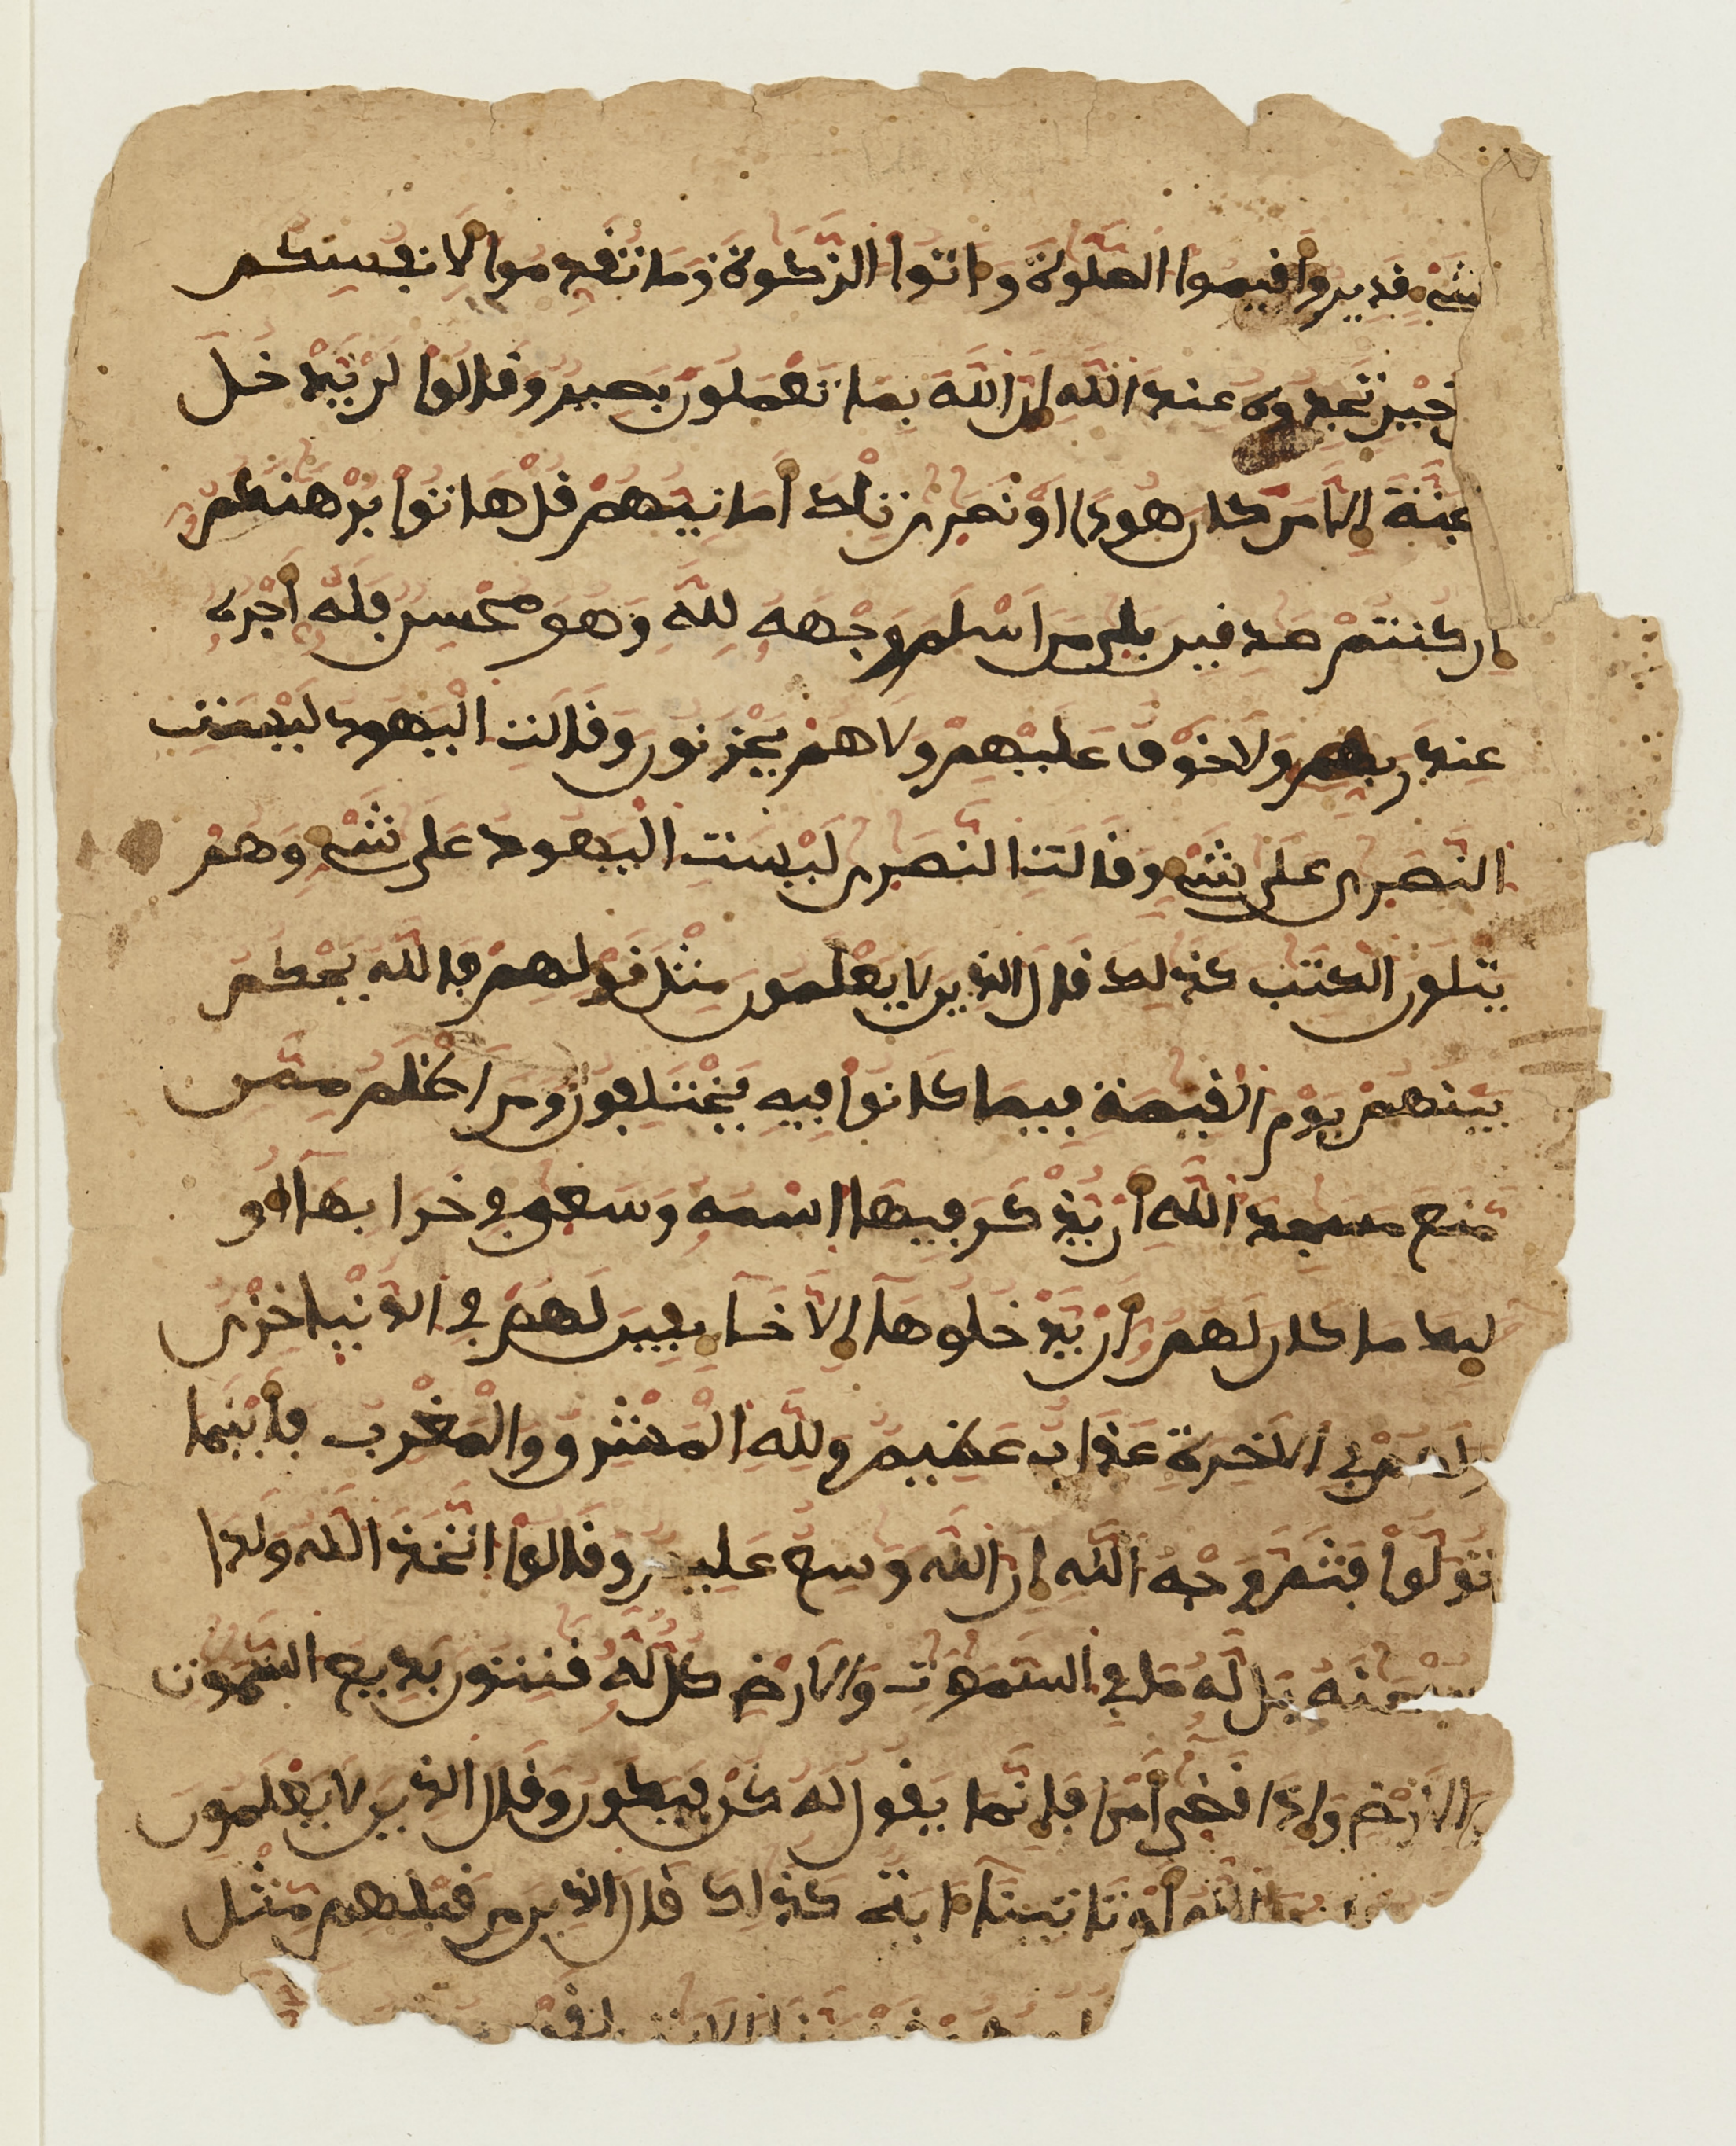 شےء قدير وأقيموا الصلوة وءاتوا الزكوة وما تقدموا لأنفسكم
خير تجدوه عند الله إن الله بما تعملون بصير وقالوا لن يدخل
الجنة إلا من كان هودا او نصرى تلك أمانيهم قل هاتوا برهنكم
إن كنتم صدقين بلى من اسلم وجهه لله وهو محسن فله أجره
عند ربه ولا خوف عليهم ولا هم يحزنون وقالت اليهود ليست
النصرى على شےء وقالت النصرى ليست اليهود على شےء وهم
يتلون الكتب كذلك قال الذين لا يعلمون مثل قولهم فالله يحكم
بينهم يوم القيمة فيما كانوا فيه يختلفون ومن اظلم ممن
منع مسجد الله أن يذكر فيها اسمه وسعى في خرابها أو
ما كان لهم أن يدخلوها إلا خايفين لهم في الدنيا خزى
ولهم في الاخرة عذاب عظيم ولله المشرق والمغرب فأينما
تولوا فثم وجه الله إن الله وسع عليم وقالوا اتخذ الله ولدا
سبحنه بل له ما في السموت والارض كل له قنتون بديع السموت
والارض وإذا قضى أمرا فإنما يقول له كن فيكون وقال الذين لا يعلمون
الله أو تاتينا ءاية كذلك قال الذين من قبلهم مثل
الايت لقوم